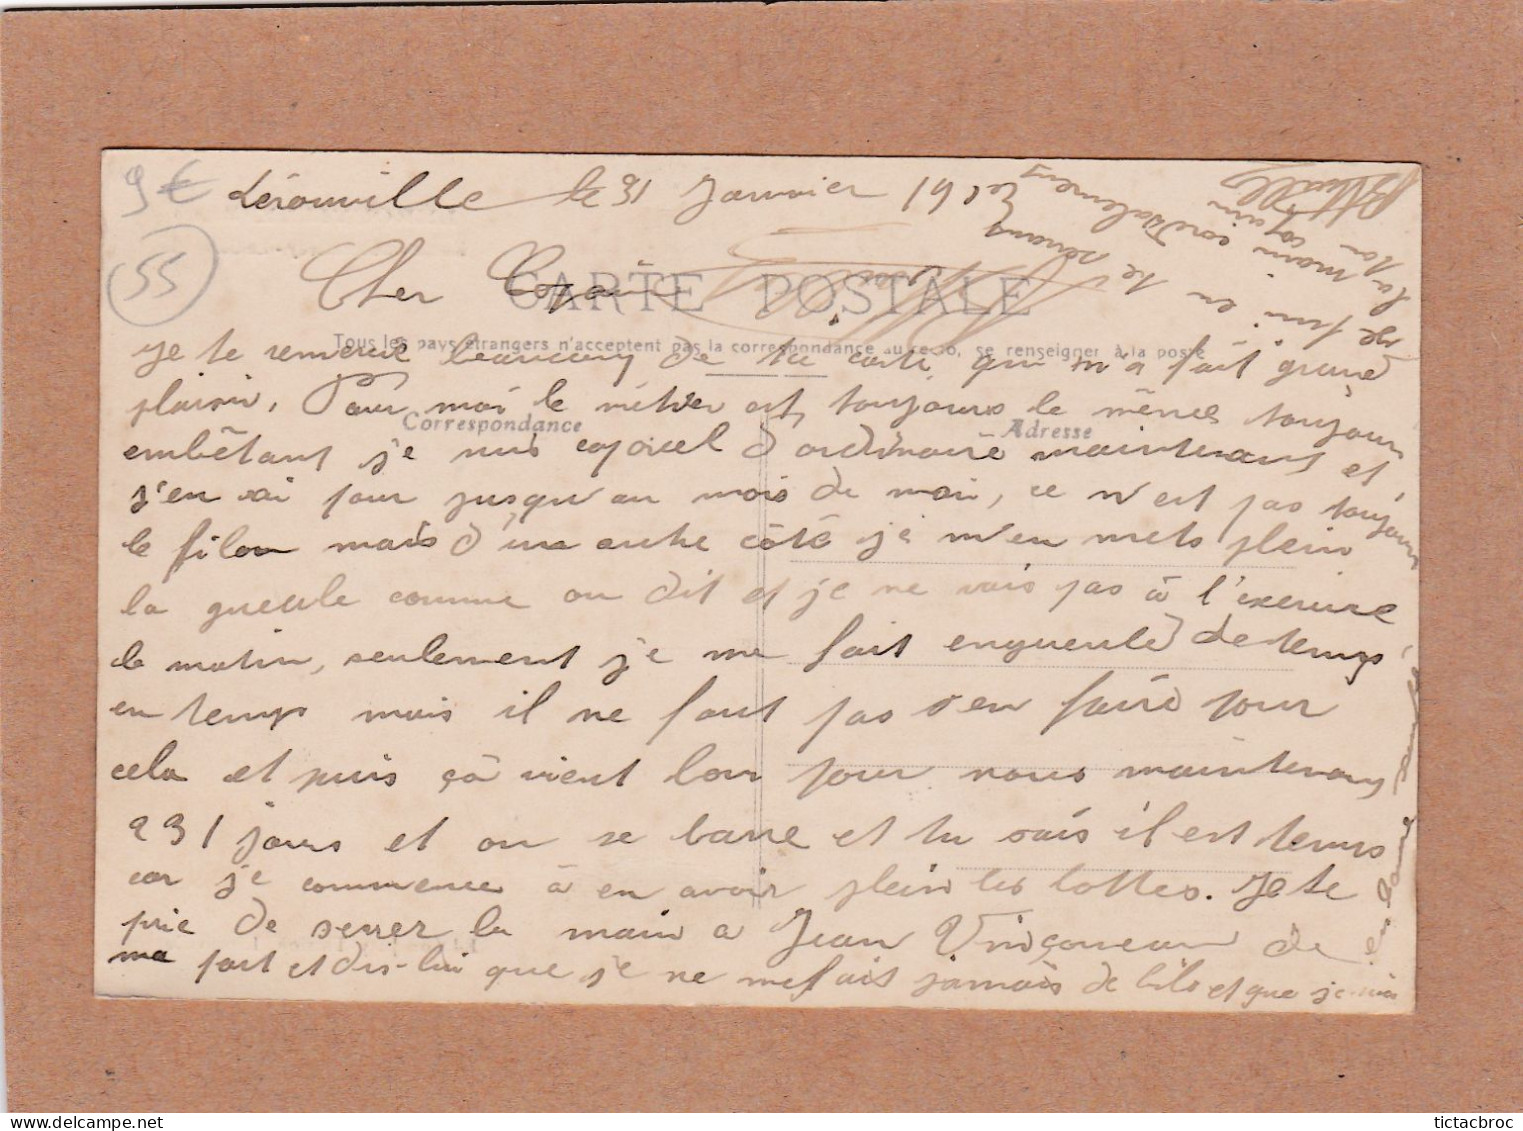 9€
55
Lérouville le 31 Janvier 19
Cher Copain
CARTE POSTALE
Tous les pays étrangers n'acceptent pas la correspondance au recto, se renseigner à la poste
Je te remercie beaucoup de ta carte qui m'a fait grand
plaisir, Pour moi le métier est toujours le même toujours
Correspondance
Adresse
embêtant je suis caporal d'ordinaire maintenant et
j'en ai pour jusqu'au mois de mai, ce n'est pas toujours
le filon mais d'un autre côté je m'en mets plein
la gueule comme on dit et je ne vais pas à l'exercice
le matin, seulement je me fait engueulé de temps
en temps mais il ne faut pas s'en faire pour
cela et puis ça vient bon pour nous maintenant
231 jours et on se barre et tu sais il est temps
car je commence à en avoir plein les bottes. Je te
prie de serrer la main a Jean Vinçonneau de
ma part et dis-lui que je ne me fait jamais de bile et que je suis
en bonne santé
Je fini en te serrant
la main cordialement
Ton copain